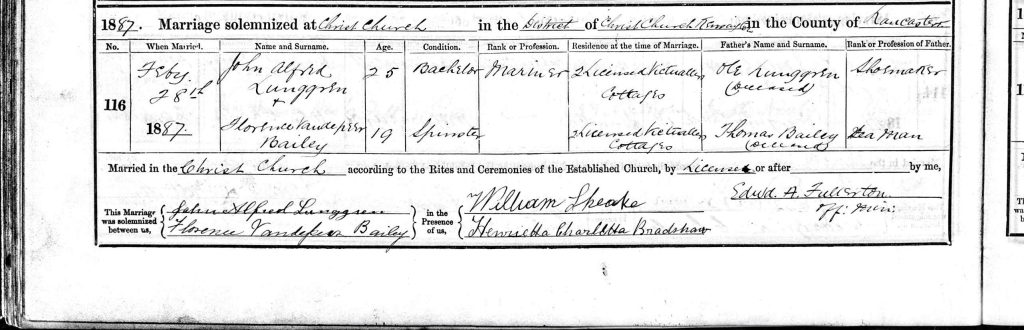 1887. Marriage solemnized at Christ Church in the District of Christ Church Kensington in the County of Lancaster
No. When Married. Name and Surname. Age. Condition. Rank or Profession. Residence at the time of Marriage. Father's Name and Surname. Rank or Profession of Father.
116
Feby. 28th 1887. John Alfred Lunggren 25 Bachelor Mariner 2 Licensed Victuallers Cottages Ole Lunggren (Deceased) Shoemaker
&
Florence Vandepeer Bailey 19 Spinster 2 Licensed Victuallers Cottages Thomas Bailey (Deceased) Sea Man
Married in the Christ Church according to the Rites and Ceremonies of the Established Church, by License or after by me,
Edwd. A. Fullerton
Off: Min:
This Marriage was solemnized between us, John Alfred Lunggren
Florence Vandepeer Bailey
in the Presence of us, William Sheake
Henrietta Charlotta Bradshaw